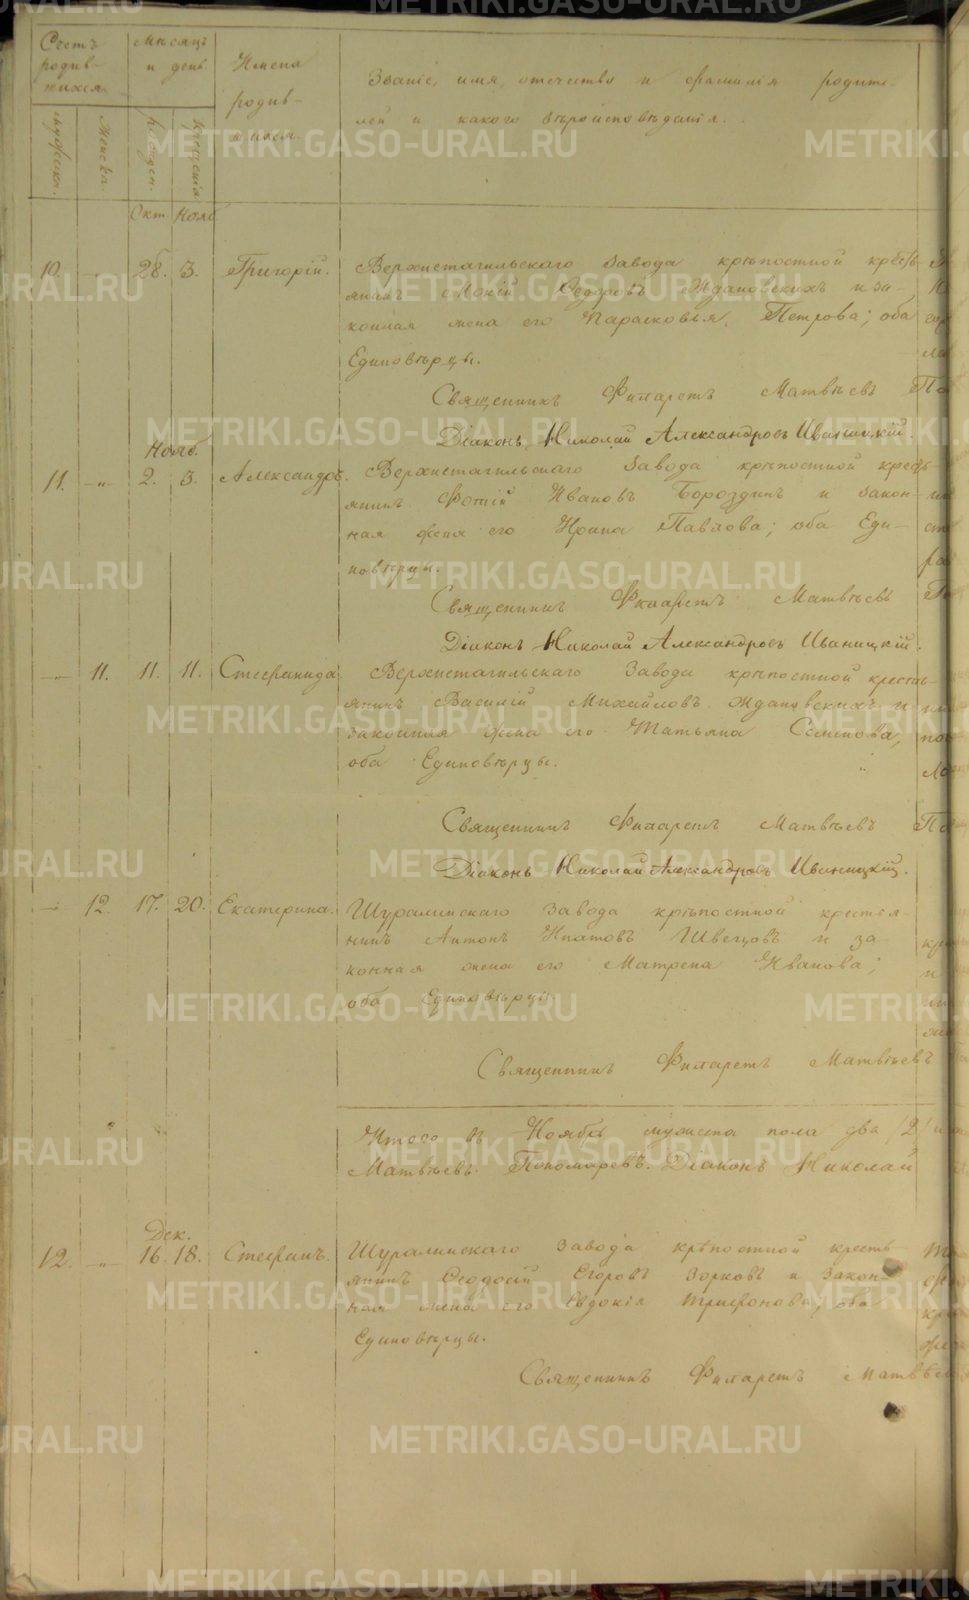 Счетъ родив-
шихся.
Мѣсяцъ
и день.
Имена
родив-
шихся.
Званіе, имя, отечество и фамилія родите-
лей и какого вѣроисповѣданія.
мужеска.
женска.
рожден.
крещенія
Окт. Нояб.
10. 28. 3. Григорій. Верхнетагильскаго завода крѣпостной кресть-
янинъ Ѳедоровъ Ждановскихъ и за-
конная жена его Парасковья Петрова; оба
Единовѣрцы.
Священникъ Филаретъ Матвѣевъ
Діаконъ Николай Александровъ Иваницкій.
Нояб.
11. -"- 2. 3. Александръ. Верхнетагильскаго завода крѣпостной кресть-
янинъ Фотій Ивановъ Бороздинъ и закон-
ная жена его Ирина Павлова; оба Еди-
новѣрцы.
Священникъ Филаретъ Матвѣевъ
Діаконъ Николай Александровъ Иваницкій.
-"- 11. 11. 11. Стефанида Верхнетагильскаго завода крѣпостной кресть-
янинъ Василій Михайловъ Ждановскихъ и
законная жена его Татьяна Семенова,
оба Единовѣрцы.
Священникъ Филаретъ Матвѣевъ
Діаконъ Николай Александровъ Иваницкій.
-"- 12. 17. 20. Екатерина. Шуралинскаго завода крѣпостной крестья-
нинъ Антонъ Ипатовъ Швецовъ и за-
конная жена его Матрена Иванова;
оба Единовѣрцы.
Священникъ Филаретъ Матвѣевъ
Итого въ Ноябрѣ мужеска пола два /2/ и
Матвѣевъ. Пономаревъ. Діаконъ Николай
Дек.
12. -"- 16. 18. Стефанъ. Шуралинскаго завода крѣпостной кресть-
янинъ Ѳеодосій Егоровъ Зорковъ и закон-
ная жена его Евдокія Трифонова; оба
Единовѣрцы.
Священникъ Филаретъ Матвѣевъ
METRIKI.GASO-URAL.RU